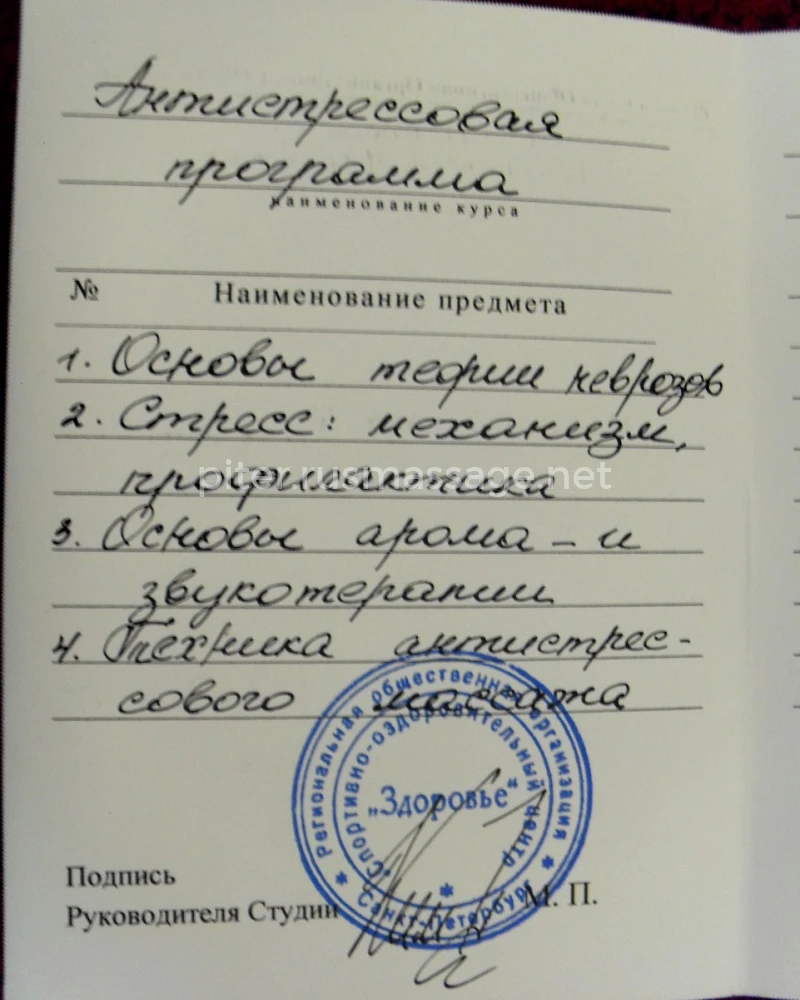 Антистрессовая
программа
наименование курса
№ Наименование предмета
1. Основы теории неврозов
2. Стресс: механизм,
профилактика
piter.rusmassage.net
3. Основы арома - и
звукотерапии
4. Техника антистрес-
сового массажа
Региональная общественная организация
Спортивно-оздоровительный центр
„Здоровье"
* Санкт-Петербург *
Подпись
Руководителя Студии
М. П.